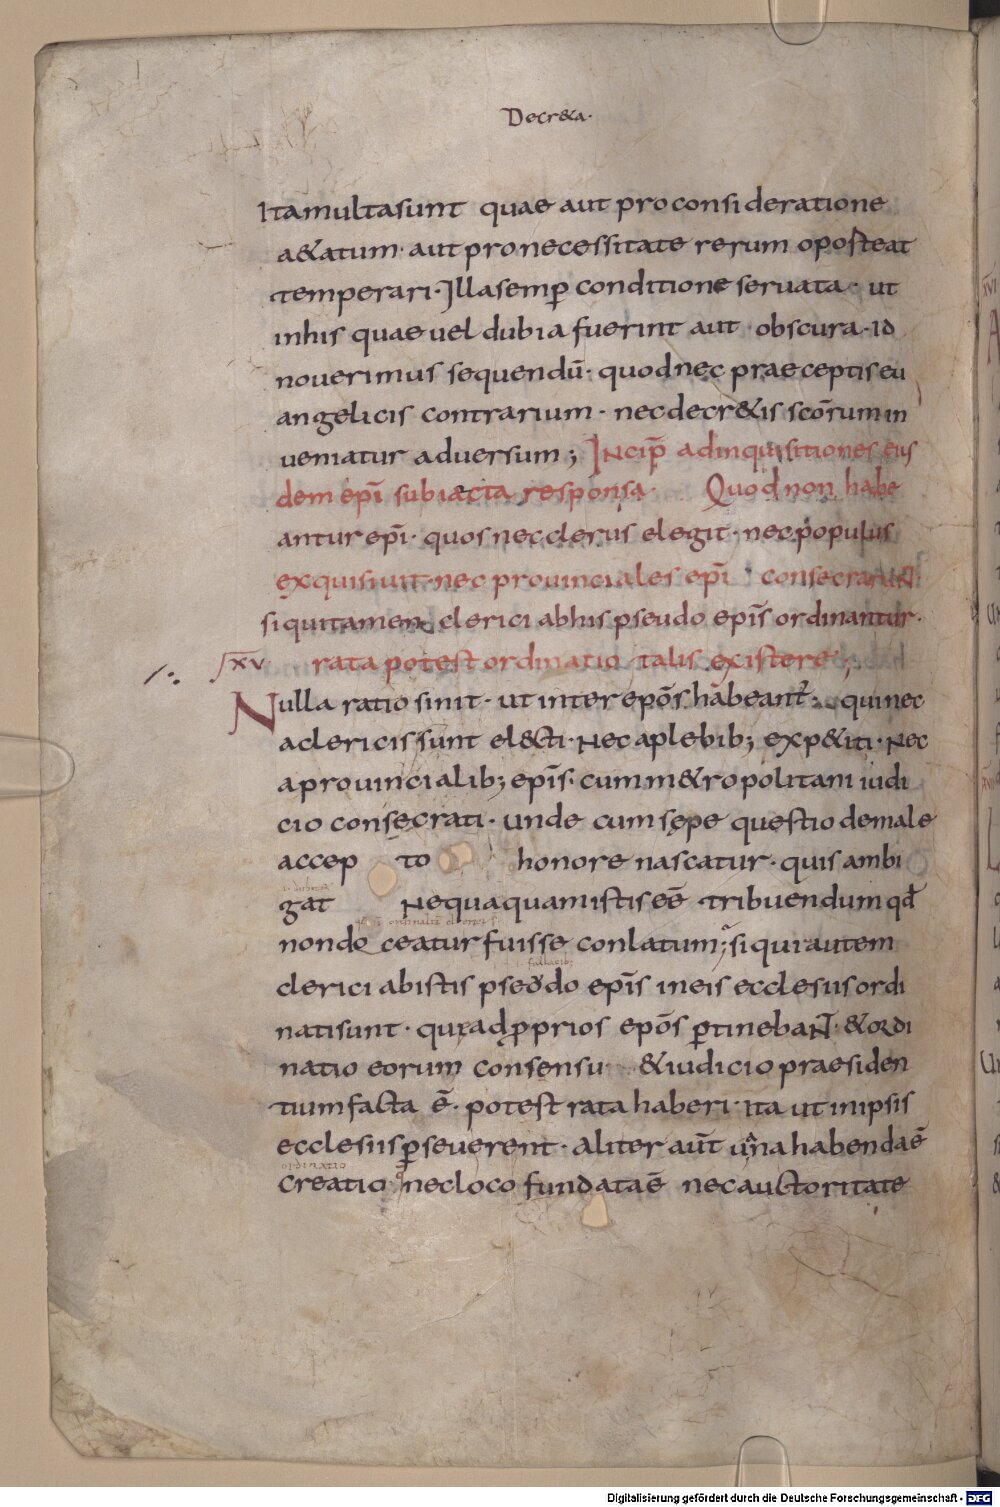 Decr&a·
Ita multa sunt quae aut pro consideratione
a&atum· aut pro necessitate rerum oposteat
temperari· Illa semꝑ conditione seruata· ut
in his quae uel dubia fuerint aut obscura· id
nouerimus sequendū· quod nec praeceptis eu
angelicis contrarium· nec decr&is scōrum in
ueniatur aduersum; Incip̄ ad inquisitiones eius
dem epī subiecta responsa· Quod non habe
antur epī· quos nec clerus elegit· nec populus
exquisiuit· nec prouinciales epī consecrarunt
si qui tamen clerici ab his pseudo epīs ordinantur·
xv rata potest ordinatio talis existere;
Nulla ratio sinit· ut inter epōs habeant̄; qui nec
a clericis sunt el&cti· Nec a plebib; exp&iti· Nec
a prouincialib; epīs· cum m&ropolitani iudi
cio consecrati· unde cum sepe questio de male
accep to honore nascatur· quis ambi
gat Nequaquam istis eē tribuendum qđ
non doceatur fuisse conlatum; si qui autem
fallacib;
clerici ab istis pseudo epīs in eis ecclesiis ordi
nati sunt· qui ad ꝓprios epōs ꝑtinebant· & ordi
natio eorum consensu & iudicio praesiden
tium facta ē· potest rata haberi· ita ut in ipsis
ecclesiis ꝑseuerent· aliter aūt uana habenda ē
ordinatio
creatio nec loco fundata ē nec auctoritate
Digitalisierung gefördert durch die Deutsche Forschungsgemeinschaft - DFG